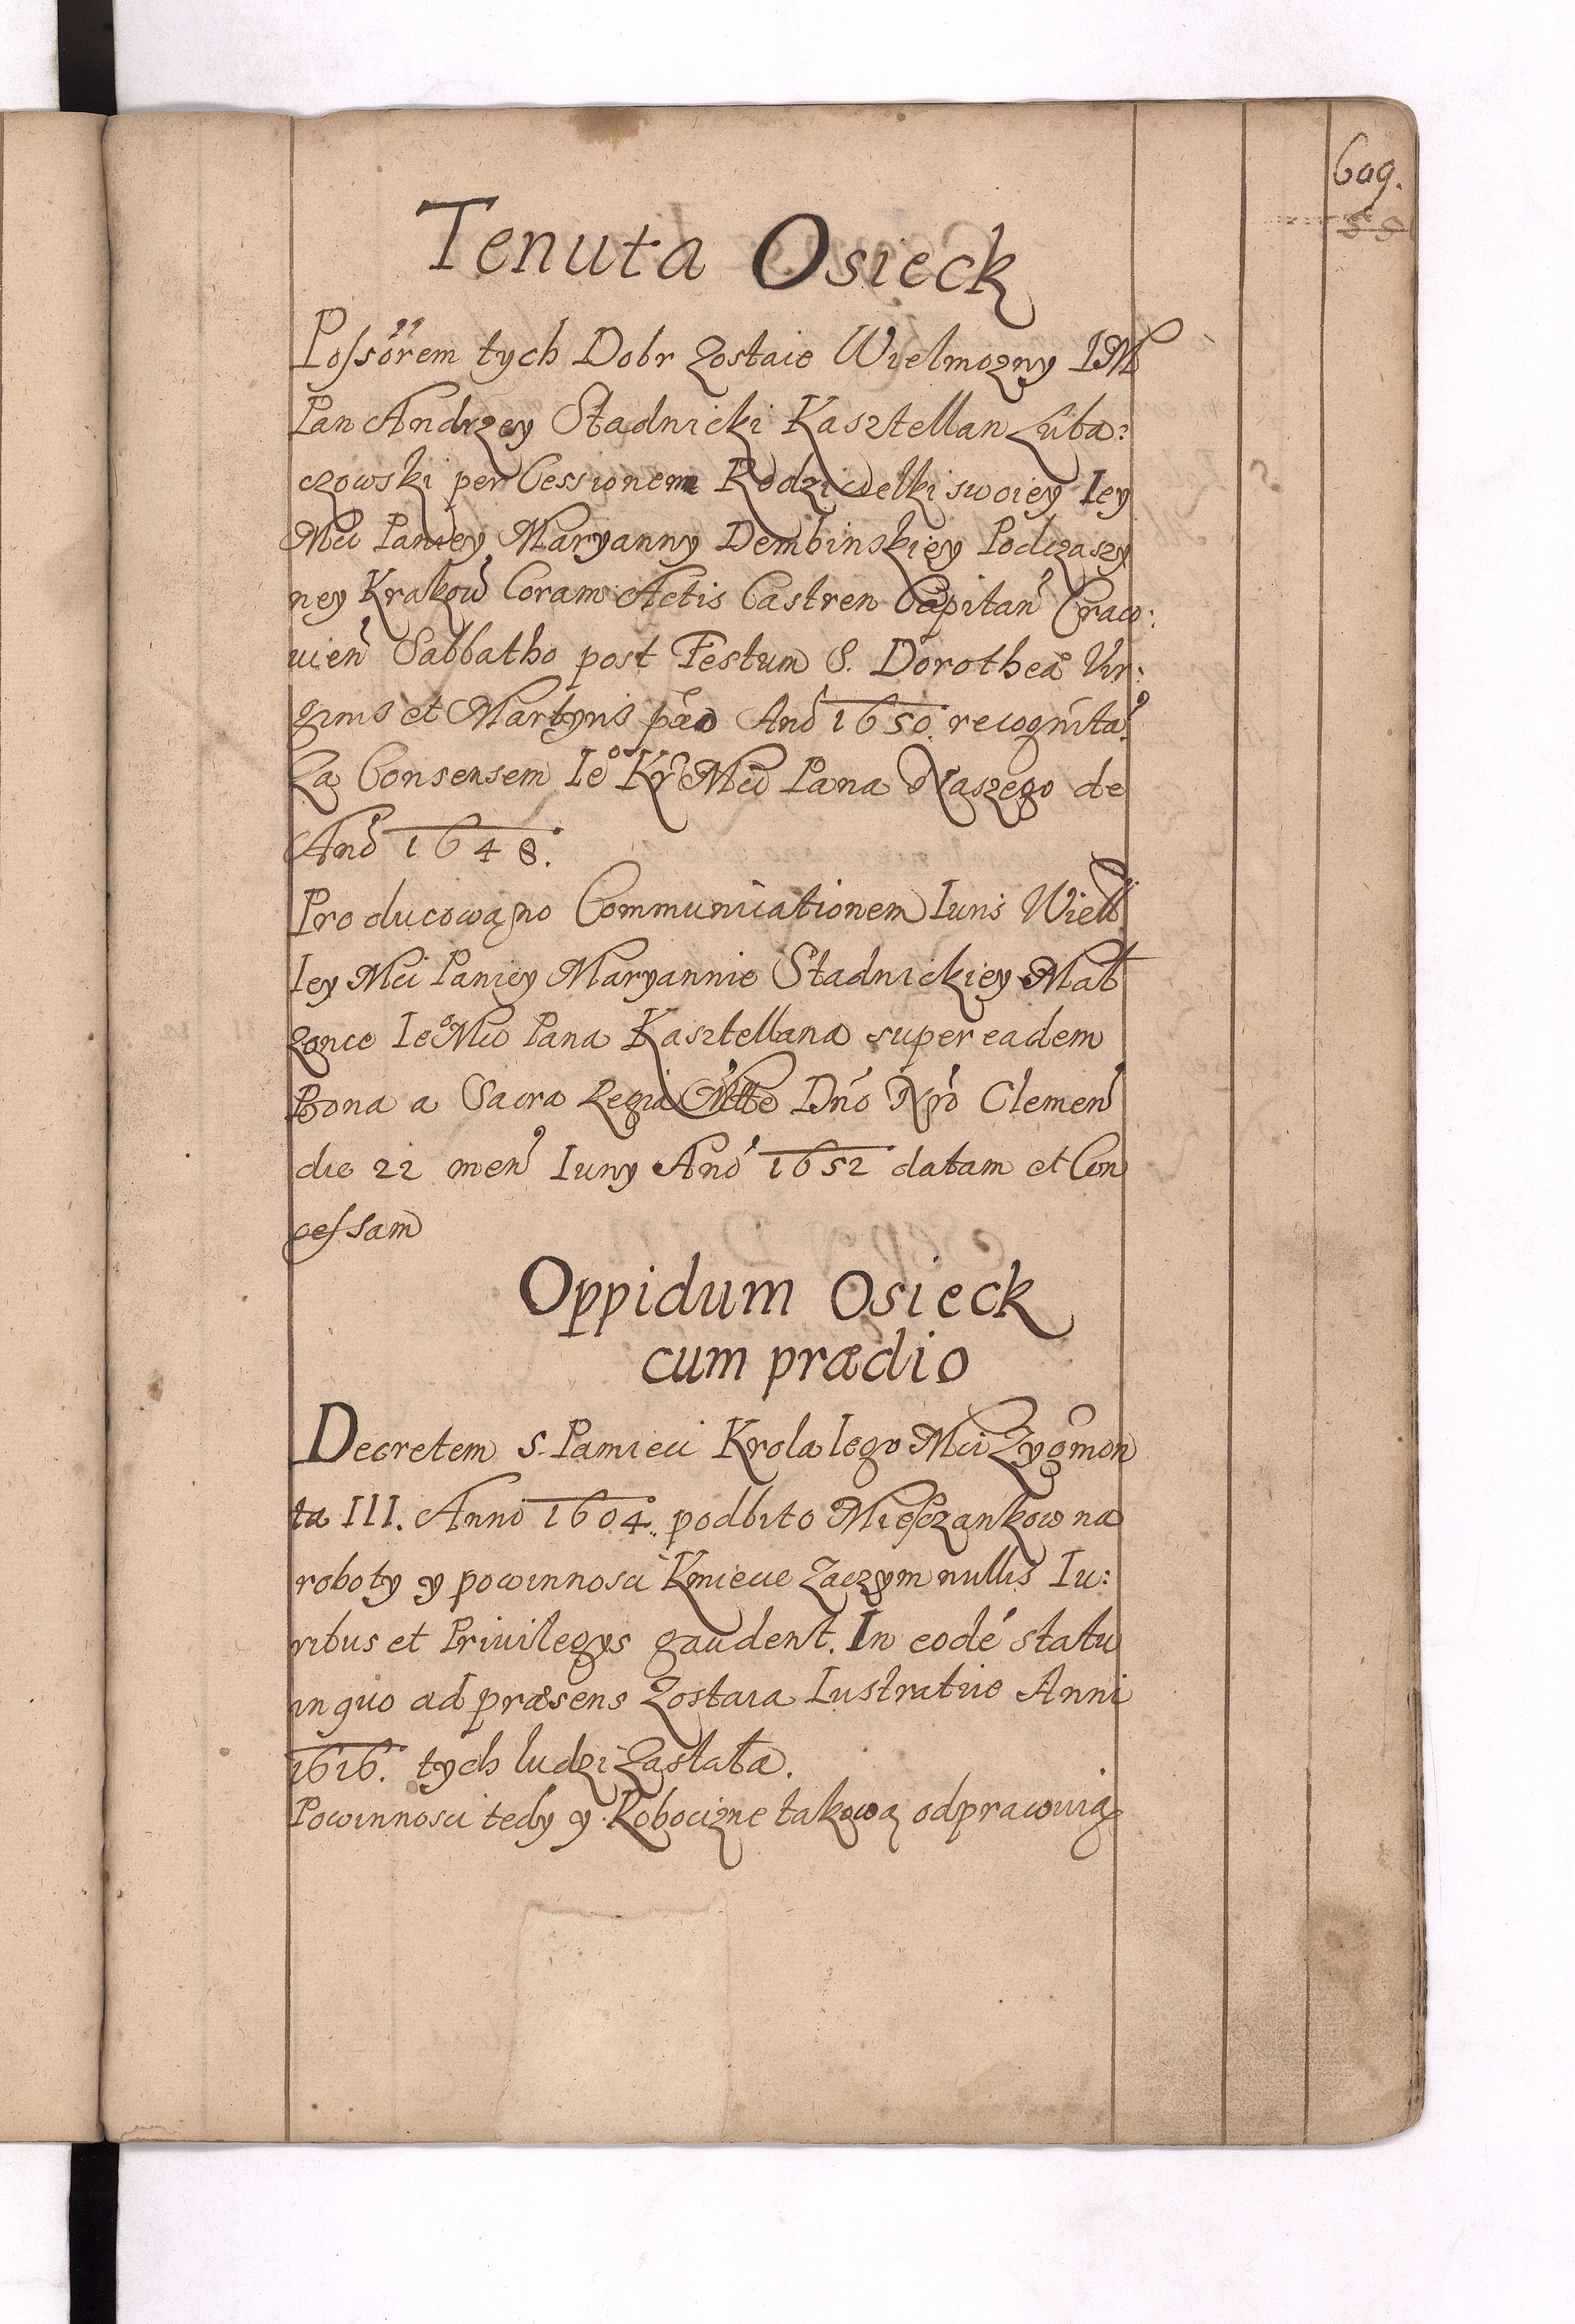 609.
55
Tenuta Osieck
Possorem tych Dobr zostaie Wielmozny IM
Pan Andrzey Stadnicki Kasztellan Luba:
czowski per Cessionem Rodzicielki swoiey Iey
Mci Paniey Maryanny Dembinskiey Podczaszy
ney Krakow Coram Actis Castren Capitan Craco:
uien Sabbatho post Festum S. Dorotheæ Vir:
ginis et Martyris Ano 1650. recognita.
Za Consensem Ieo Kr Mci Pana Naszego de
Ano 1648.
Producowano Communicationem Iuris Wiel
Iey Mci Paniey Maryannie Stadnickiey Mał
zonce Ieo Mci Pana Kasztellana super eadem
Bona a Sacra Regia Mtte Dno Nro Clemen
die 22 men Iuny Ano 1652 datam et Con
cessam
Oppidum Osieck
cum prædio
Decretem S. Pamieci Krola Iego Mci Zygmon
ta III. Anno 1604. podbito Miesczankow na
roboty y powinnosci Kmiecie zaczym nullis Iu:
ribus et Priuilegys gaudent. In eodé statu
in quo ad præsens zostaia Lustratio Anni
1616. tych ludzi zastała.
Powinnosci tedy y Robocizne takową odprawuią